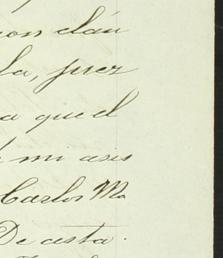 con cláu
la, juez
a que el
mi asis
Carlos M
De esta